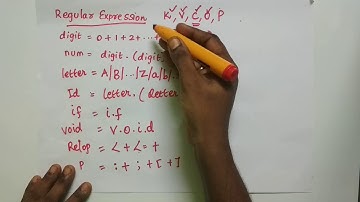 Regular Expression K, V, C, O, P
digit = 0+1+2+...
num = digit.(digit
letter = A/B/...Z/a/b/
Id = letter.(letter
if = i.f
void = v.o.i.d
Relop = <+<=+
P = :+ ; +[+]